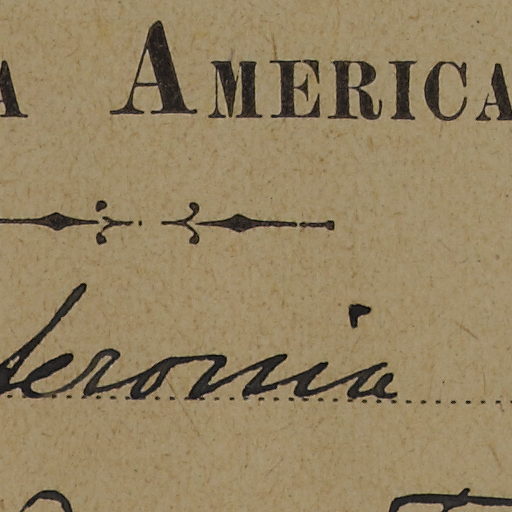 A AMERICA
eronia